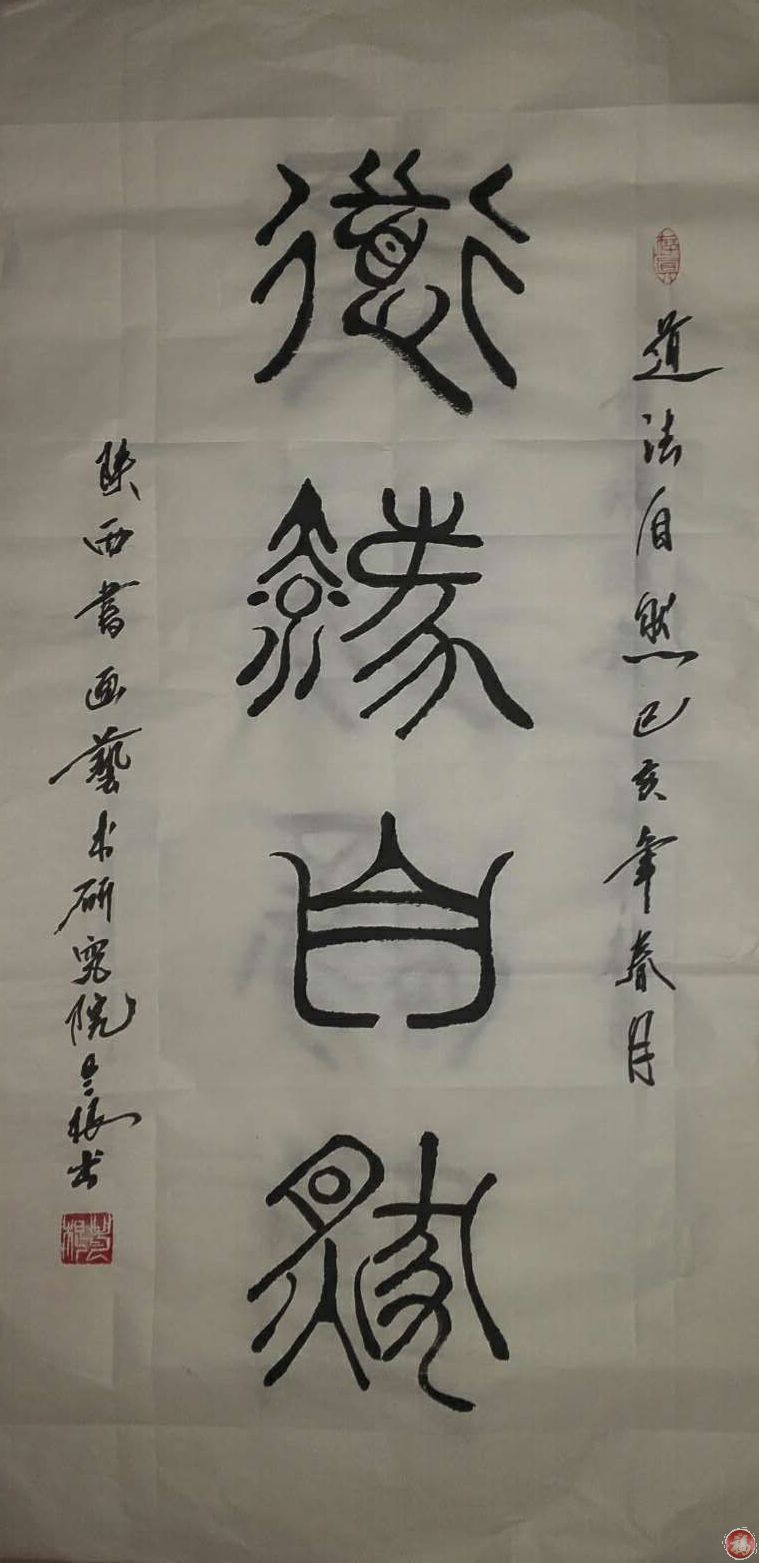 道法自然
道法自然己亥年春月
陕西書画藝术研究院
書
福